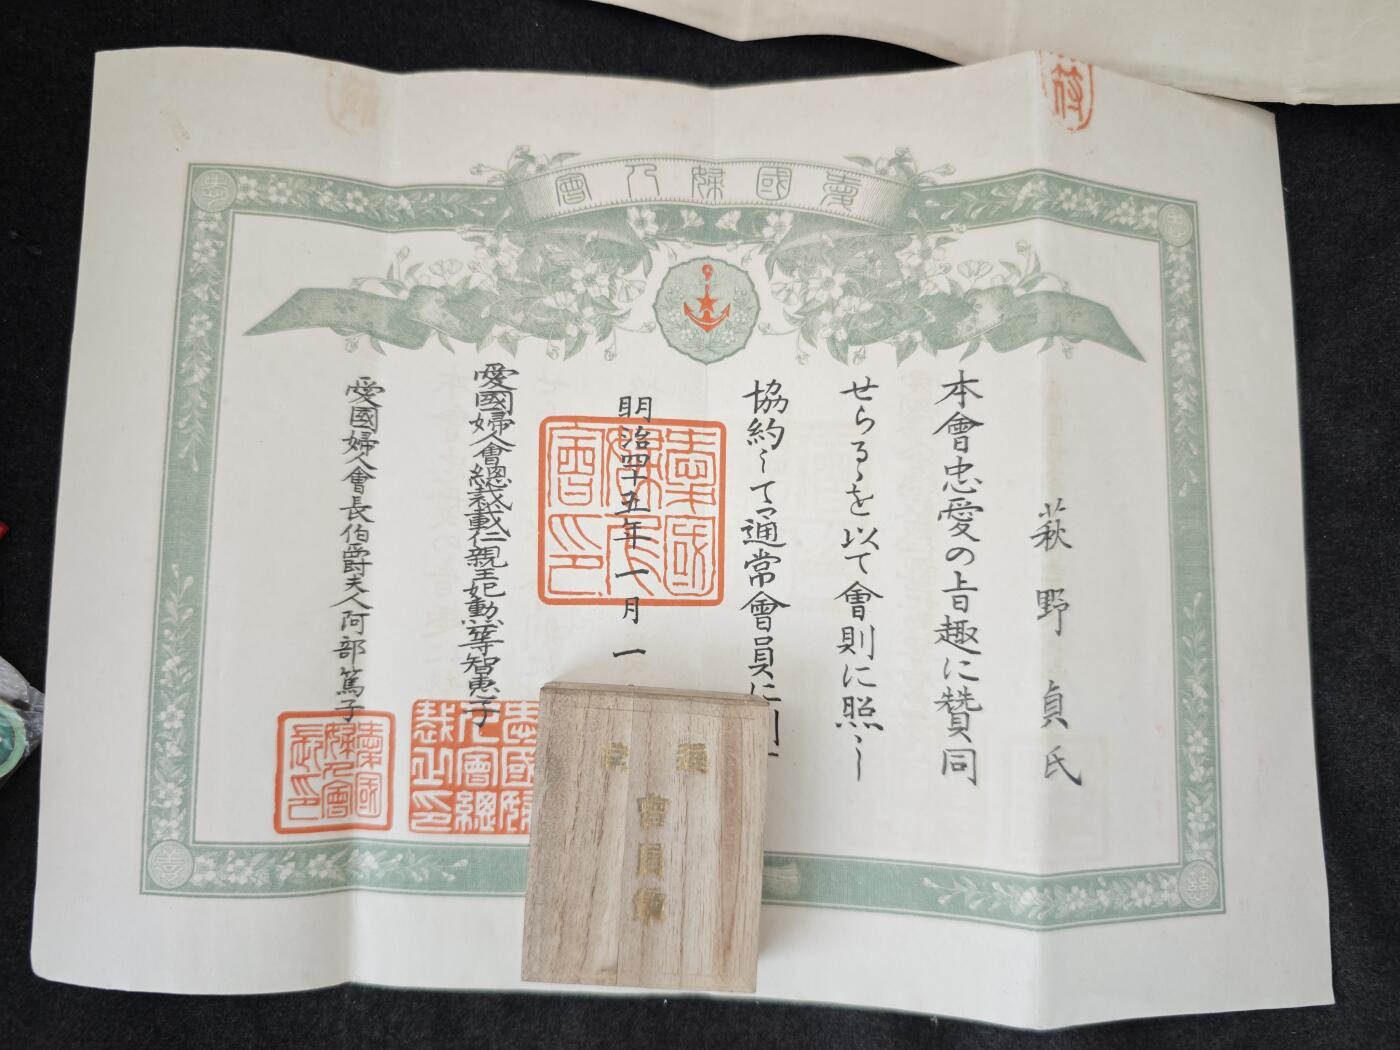 愛國婦人會
萩野貞氏
本會忠愛の旨趣に賛同
せらるゝを以て會則に照し
協約して通常會員に列
明治四十五年一月一
愛國婦人會總裁載仁親王妃勲一等智恵子
愛國婦人會長伯爵夫人阿部篤子
愛國婦人會印
愛國婦人會總裁之印
愛國婦人會長印
通常
會員章